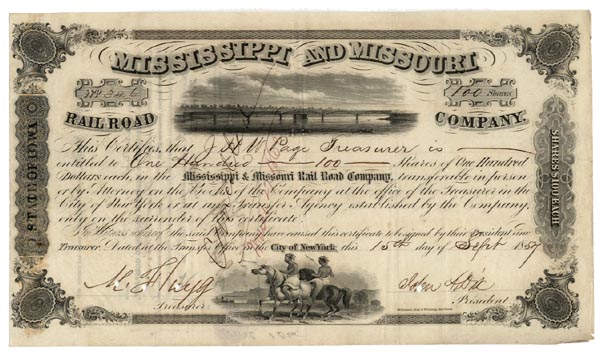 MISSISSIPPI AND MISSOURI
No 346
100 Shares
RAIL ROAD COMPANY.
STATE OF IOWA
SHARES $100 EACH
This Certifies, that J H W Page Treasurer is
entitled to One Hundred —100— Shares of One Hundred
Dollars each in the Mississippi & Missouri Rail Road Company, transferable in person
or by Attorney on the Books of the Company at the office of the Treasurer in the
City of New York or at any Agency established by the Company,
only on the surrender of this certificate.
In Witness whereof the said Company have caused this certificate to be signed by their President and
Treasurer. Dated at the Office in the City of New York, this 15th day of Sept 1857
Treasurer.
John A Dix
President